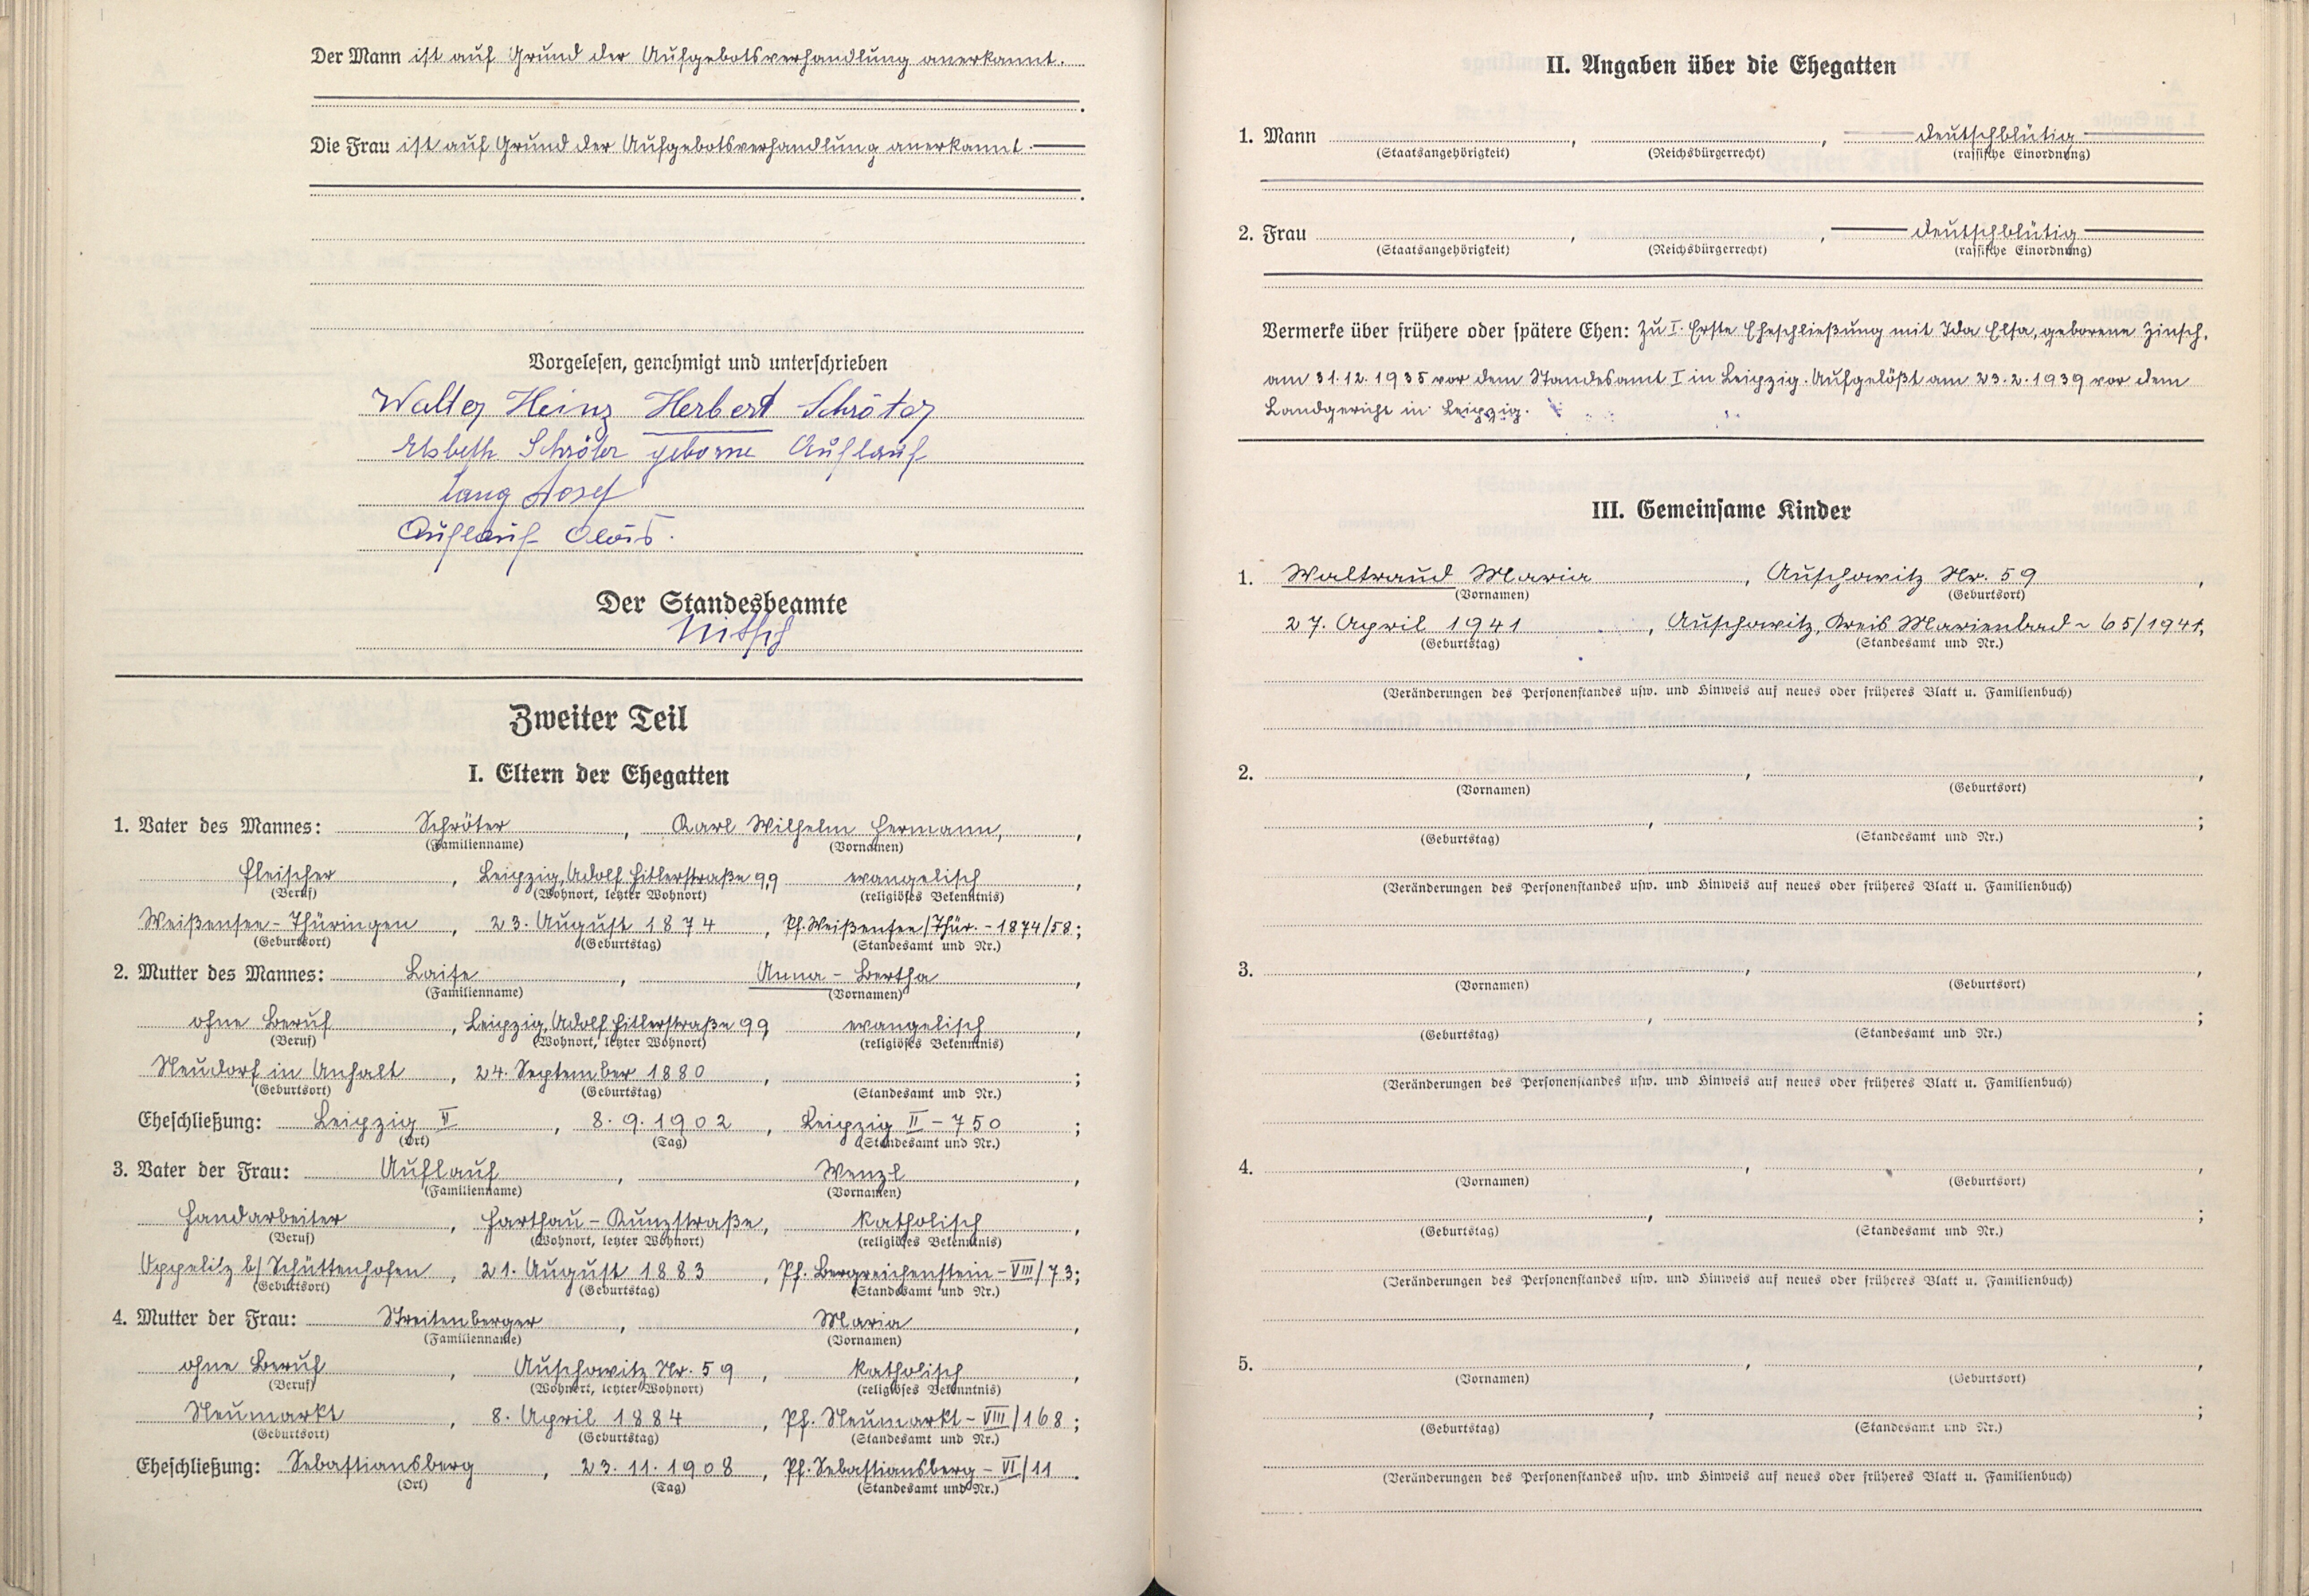 Der Mann ist auf Grund der Aufgebotsverhandlung anerkannt.
Die Frau ist auf Grund der Aufgebotsverhandlung anerkannt.
Vorgelesen, genehmigt und unterschrieben
Walter Heinz Herbert Schröter
Elsbeth Schröter geborne Auflauf
Lang Josef
Auflauf Alois.
Der Standesbeamte
Nitsch
Zweiter Teil
I. Eltern der Ehegatten
1. Vater des Mannes: Schröter, Karl Wilhelm Hermann,
(Familienname) (Vornamen)
Fleischer, Leipzig, Adolf Hitlerstraße 99, evangelisch,
(Beruf) (Wohnort, letzter Wohnort) (religiöses Bekenntnis)
Weißensee-Thüringen, 23. August 1874, Pf. Weißensee/Thür. - 1874/58;
(Geburtsort) (Geburtstag) (Standesamt und Nr.)
2. Mutter des Mannes: Laife, Anna - Bertha,
(Familienname) (Vornamen)
ohne Beruf, Leipzig, Adolf Hitlerstraße 99, evangelisch,
(Beruf) (Wohnort, letzter Wohnort) (religiöses Bekenntnis)
Neudorf in Anhalt, 24. September 1880, ;
(Geburtsort) (Geburtstag) (Standesamt und Nr.)
Eheschließung: Leipzig II, 8.9.1902, Leipzig II - 750;
(Ort) (Tag) (Standesamt und Nr.)
3. Vater der Frau: Auflauf, Wenzl,
(Familienname) (Vornamen)
Handarbeiter, Harthau - Kunzstraße, katholisch,
(Beruf) (Wohnort, letzter Wohnort) (religiöses Bekenntnis)
Oppelitz b/ Schüttenhofen, 21. August 1883, Pf. Bergreichenstein - VIII/73;
(Geburtsort) (Geburtstag) (Standesamt und Nr.)
4. Mutter der Frau: Streitenberger, Maria,
(Familienname) (Vornamen)
ohne Beruf, Auschowitz Nr. 59, katholisch,
(Beruf) (Wohnort, letzter Wohnort) (religiöses Bekenntnis)
Neumarkt, 8. April 1884, Pf. Neumarkt - VIII/168;
(Geburtsort) (Geburtstag) (Standesamt und Nr.)
Eheschließung: Sebastiansberg, 23.11.1908, Pf. Sebastiansberg - VI/11.
(Ort) (Tag) (Standesamt und Nr.)
II. Angaben über die Ehegatten
1. Mann , , deutschblütig
(Staatsangehörigkeit) (Reichsbürgerrecht) (rassische Einordnung)
2. Frau , , deutschblütig
(Staatsangehörigkeit) (Reichsbürgerrecht) (rassische Einordnung)
Vermerke über frühere oder spätere Ehen: Zu I. Erste Eheschließung mit Ida Elsa, geborene Zinsch,
am 31.12.1935 vor dem Standesamt I in Leipzig. Aufgelößt am 23.2.1939 vor dem
Landgericht in Leipzig.
III. Gemeinsame Kinder
1. Waltraud Maria, Auschowitz Nr. 59,
(Vornamen) (Geburtsort)
27. April 1941, Auschowitz, Kreis Marienbad - 65/1941;
(Geburtstag) (Standesamt und Nr.)
(Veränderungen des Personenstandes usw. und Hinweis auf neues oder früheres Blatt u. Familienbuch)
2. , ,
(Vornamen) (Geburtsort)
, ;
(Geburtstag) (Standesamt und Nr.)
(Veränderungen des Personenstandes usw. und Hinweis auf neues oder früheres Blatt u. Familienbuch)
3. , ,
(Vornamen) (Geburtsort)
, ;
(Geburtstag) (Standesamt und Nr.)
(Veränderungen des Personenstandes usw. und Hinweis auf neues oder früheres Blatt u. Familienbuch)
4. , ,
(Vornamen) (Geburtsort)
, ;
(Geburtstag) (Standesamt und Nr.)
(Veränderungen des Personenstandes usw. und Hinweis auf neues oder früheres Blatt u. Familienbuch)
5. , ,
(Vornamen) (Geburtsort)
, ;
(Geburtstag) (Standesamt und Nr.)
(Veränderungen des Personenstandes usw. und Hinweis auf neues oder früheres Blatt u. Familienbuch)